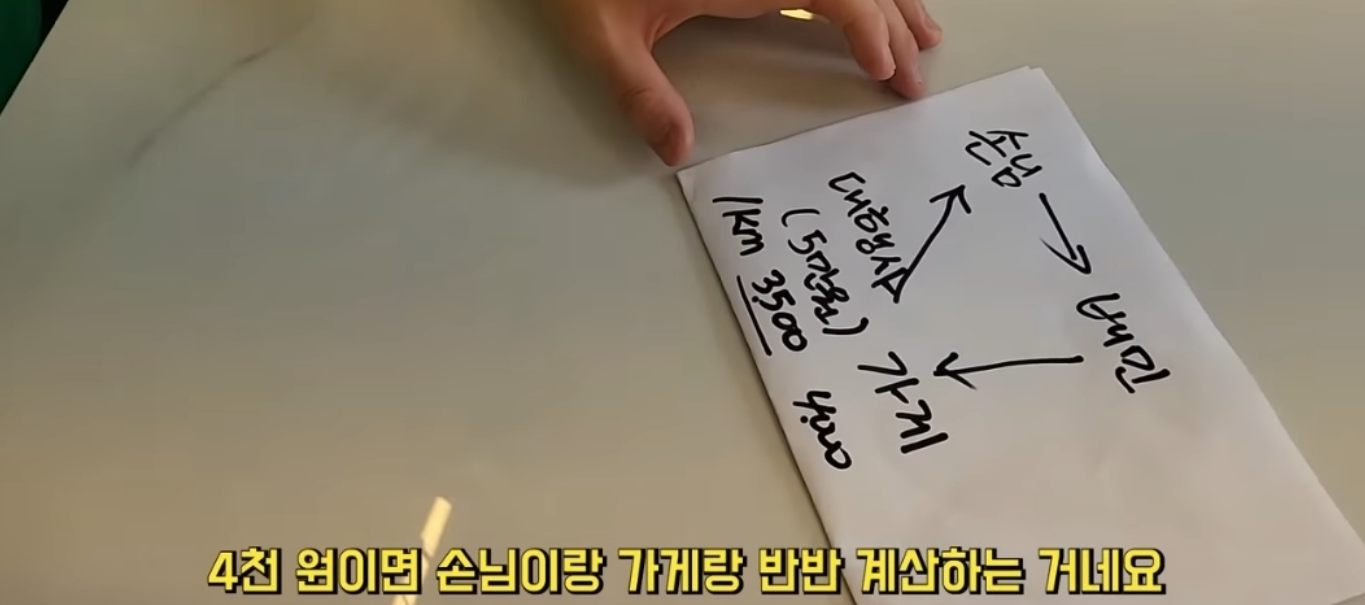 손님
배민
가게
대행사
(5만원)
1km 3,500
4,000
4천 원이면 손님이랑 가게랑 반반 계산하는 거네요